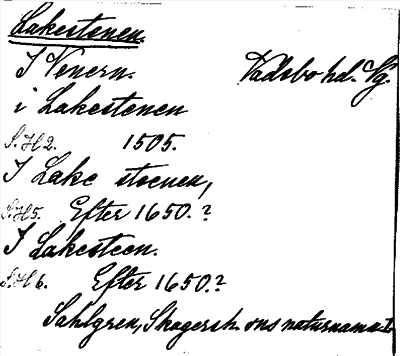 Lakestenen.
I Venern. Vadsbo hd. Vg.
i Lakestenen
S.H 2. 1505.
I Lake steenen,
S.H 5. Efter 1650.?
I Lakesteen.
S.H 6. Efter 1650.?
Sahlgren, Skagersh. ons naturnamn 1.